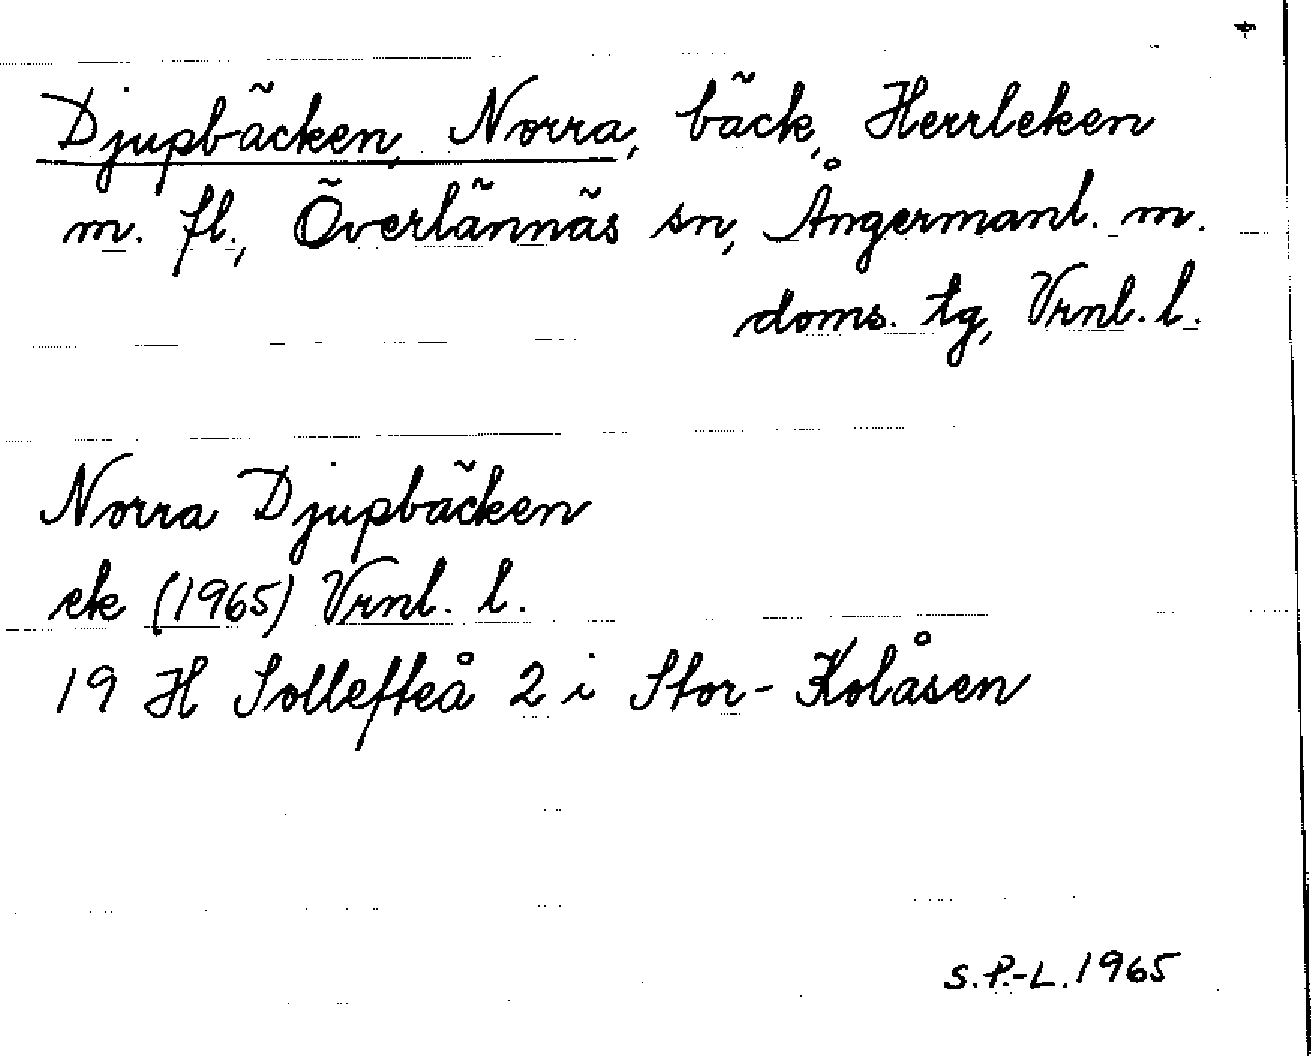 Djupbäcken, Norra, bäck, Herrleken
m. fl., Överlännäs sn, Ångermanl. m.
doms. tg, Vrnl. l.
Norra Djupbäcken
ek (1965) Vrnl. l.
19 H Sollefteå 2 i Stor-Kolåsen
S.P.-L. 1965